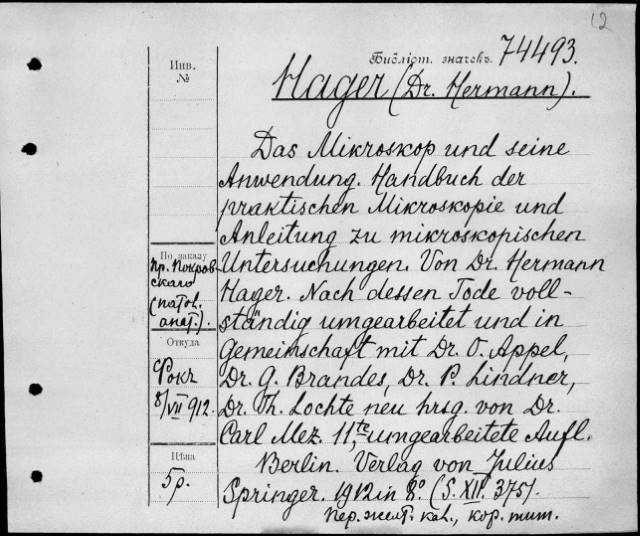 12
Библіот. значекъ. 74493.
Инв.
№
Hager (Dr. Hermann).
Das Mikroskop und seine
Anwendung. Handbuch der
praktischen Mikroskopie und
Anleitung zu mikroskopischen
Untersuchungen. Von Dr. Hermann
Hager. Nach dessen Tode voll-
ständig umgearbeitet und in
Gemeinschaft mit Dr. O. Appel,
Dr. G. Brandes, Dr. P. Lindner,
Dr. Th. Lochte neu hrsg. von Dr.
Carl Mez. 11,te umgearbeitete Aufl.
Berlin. Verlag von Julius
Springer. 1912 in 8º. (S. XII. 375).
Пер. желт. кал., кор. тит.
По заказу
Пр. Покров-
скаго
(патол.
анат.).
Откуда
Рокк
8/VII 912.
Цѣна
5р.